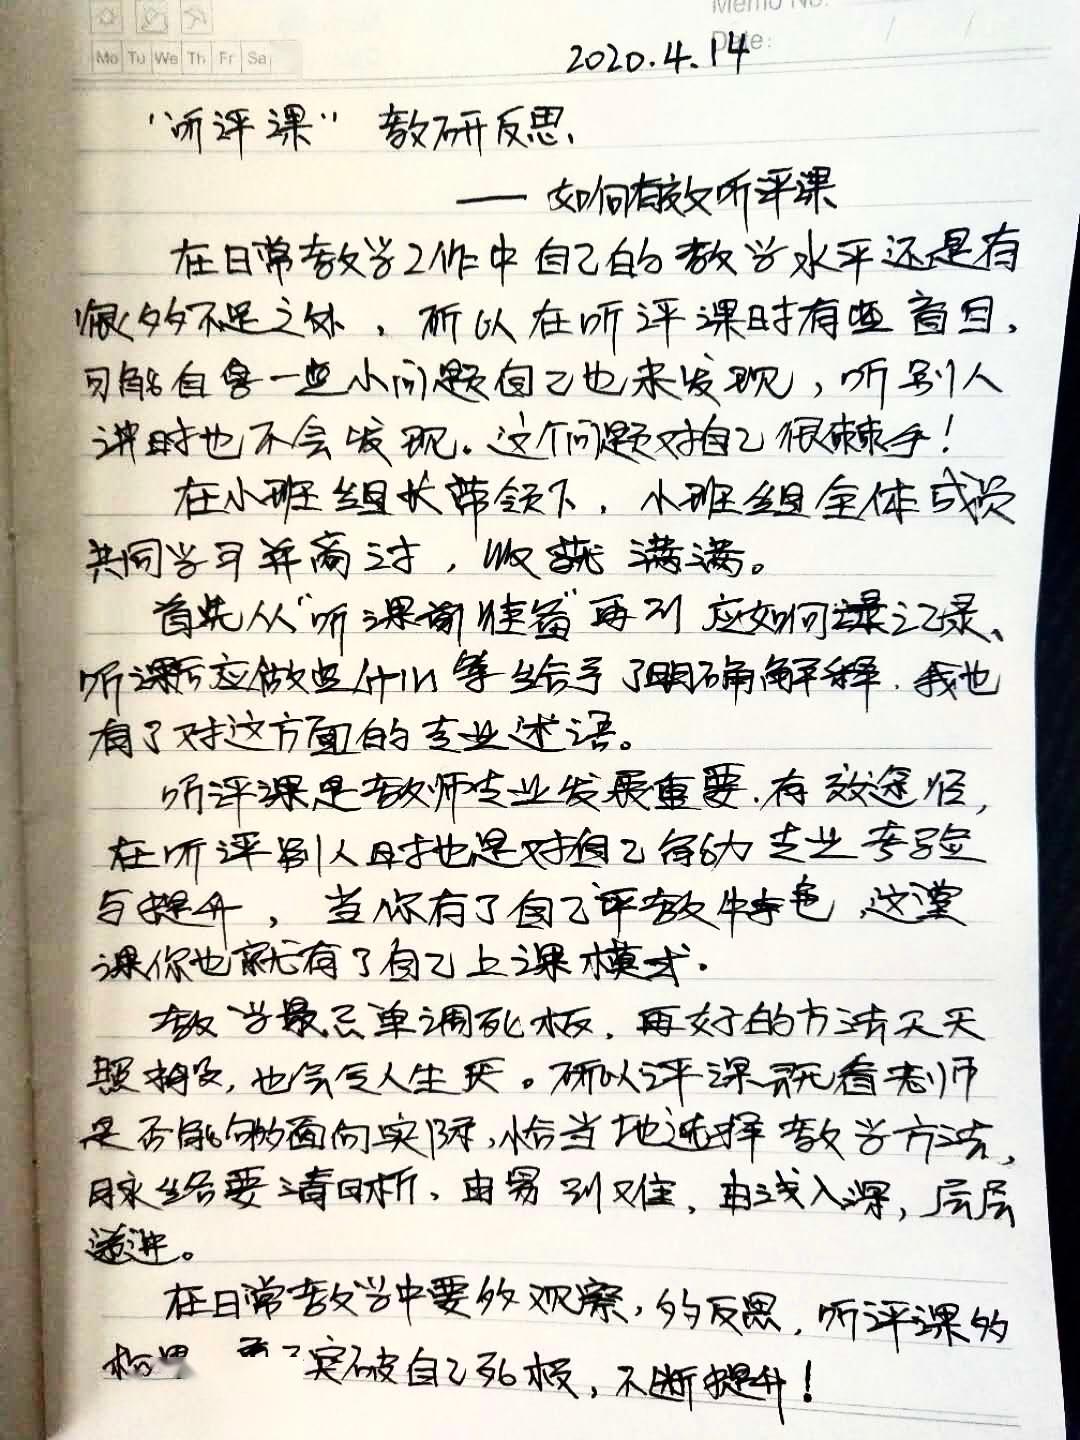 Memo No.
Mo Tu We Th Fr Sa
Date:
2020.4.14
"听评课"教研反思、
——如何有效听评课
在日常教学工作中自己的教学水平还是有
很多不足之处，所以在听评课时有些盲目，
可能自身一些小问题自己也未发现，听别人
讲时也不会发现。这个问题对自己很棘手！
在小班组长带领下，小班组全体成员
共同学习并商讨，收获满满。
首先从"听课前准备"再到应如何记录、
听课后应做些什么等给予了明确解释．我也
有了对这方面的专业述语。
听评课是教师专业发展重要．有效途径，
在听评别人时也是对自己能力专业考验
与提升，当你有了自己评教特色，这堂
课你也就有了自己上课模式．
教学最忌单调死板，再好的方法天天
照搬，也会令人生厌。所以评课就看老师
是否能够面向实际，恰当地选择教学方法，
脉络要清晰．由易到难，由浅入深，层层
递进。
在日常教学中要多观察，多反思，听评课的
突破自己死板，不断提升！